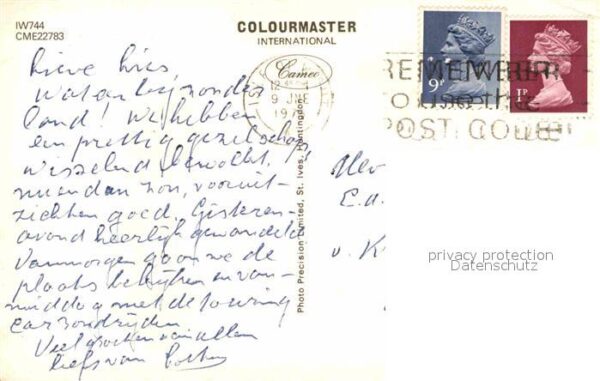 IW744
CME22783
COLOURMASTER
INTERNATIONAL
Cameo
Photo Precision Limited, St. Ives, Huntingdon
12
9 JNE
197
REMEMBER
TO USE THE
POST CODE
9P
1P
Lieve
Wat een bijzonder
land! We hebben
een prettig gezelschap,
wisselend bewolkt,
nu en dan zon, vooruit-
zichten goed. Gisteren-
avond heerlijk gewandeld
Vanmorgen gaan we de
plaats bekijken en van-
middag met de touring
car rondrijden
Veel groeten van allen
liefs van
Mev
E.d.
v. K
privacy protection
Datenschutz